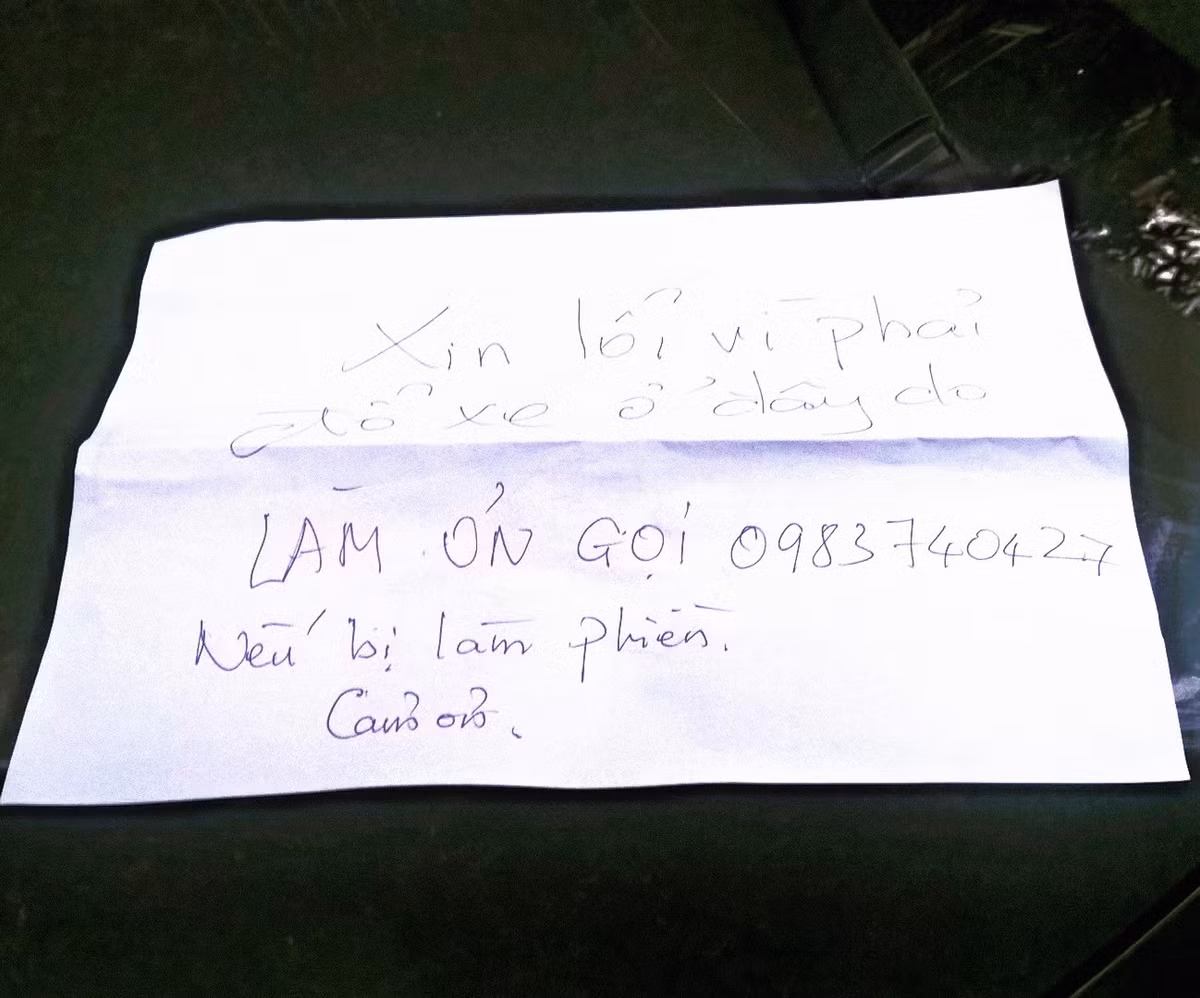 Xin lỗi vì phải
đỗ xe ở đây do
LÀM ƠN GỌI 0983740427
Nếu bị làm phiền.
Cảm ơn.